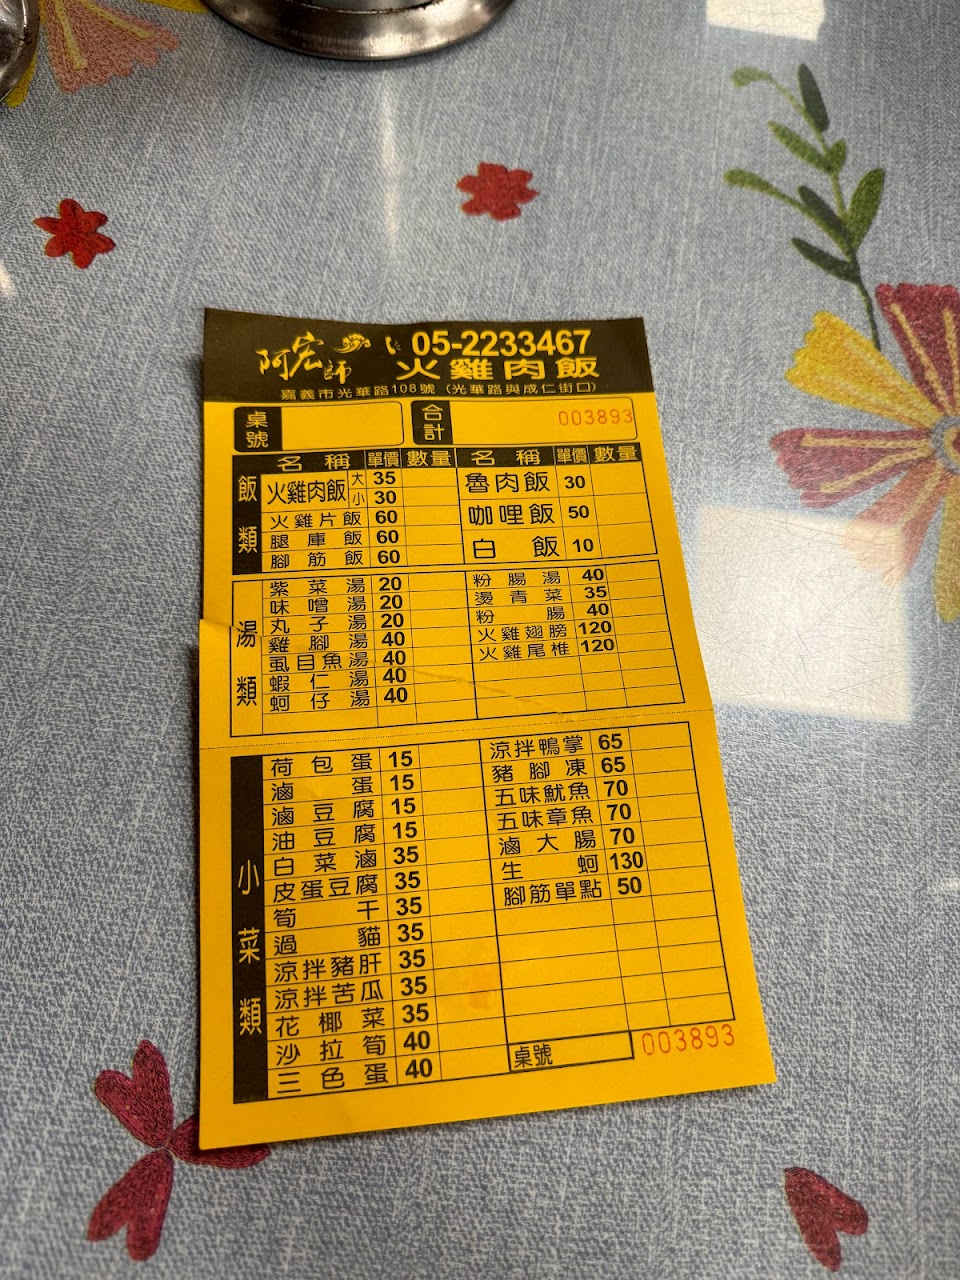 阿宏師 05-2233467
火雞肉飯
嘉義市光華路108號（光華路與成仁街口）
桌號 合計 003893
名稱 單價 數量 名稱 單價 數量
飯類
火雞肉飯 大 35
小 30
火雞片飯 60
腿庫飯 60
腳筋飯 60
魯肉飯 30
咖哩飯 50
白飯 10
湯類
紫菜湯 20
味噌湯 20
丸子湯 20
雞腳湯 40
虱目魚湯 40
蝦仁湯 40
蚵仔湯 40
粉腸湯 40
燙青菜 35
粉腸 40
火雞翅膀 120
火雞尾椎 120
小菜類
荷包蛋 15
滷蛋 15
滷豆腐 15
油豆腐 15
白菜滷 35
皮蛋豆腐 35
筍干 35
過貓 35
涼拌豬肝 35
涼拌苦瓜 35
花椰菜 35
沙拉筍 40
三色蛋 40
涼拌鴨掌 65
豬腳凍 65
五味魷魚 70
五味章魚 70
滷大腸 70
生蚵 130
腳筋單點 50
桌號 003893